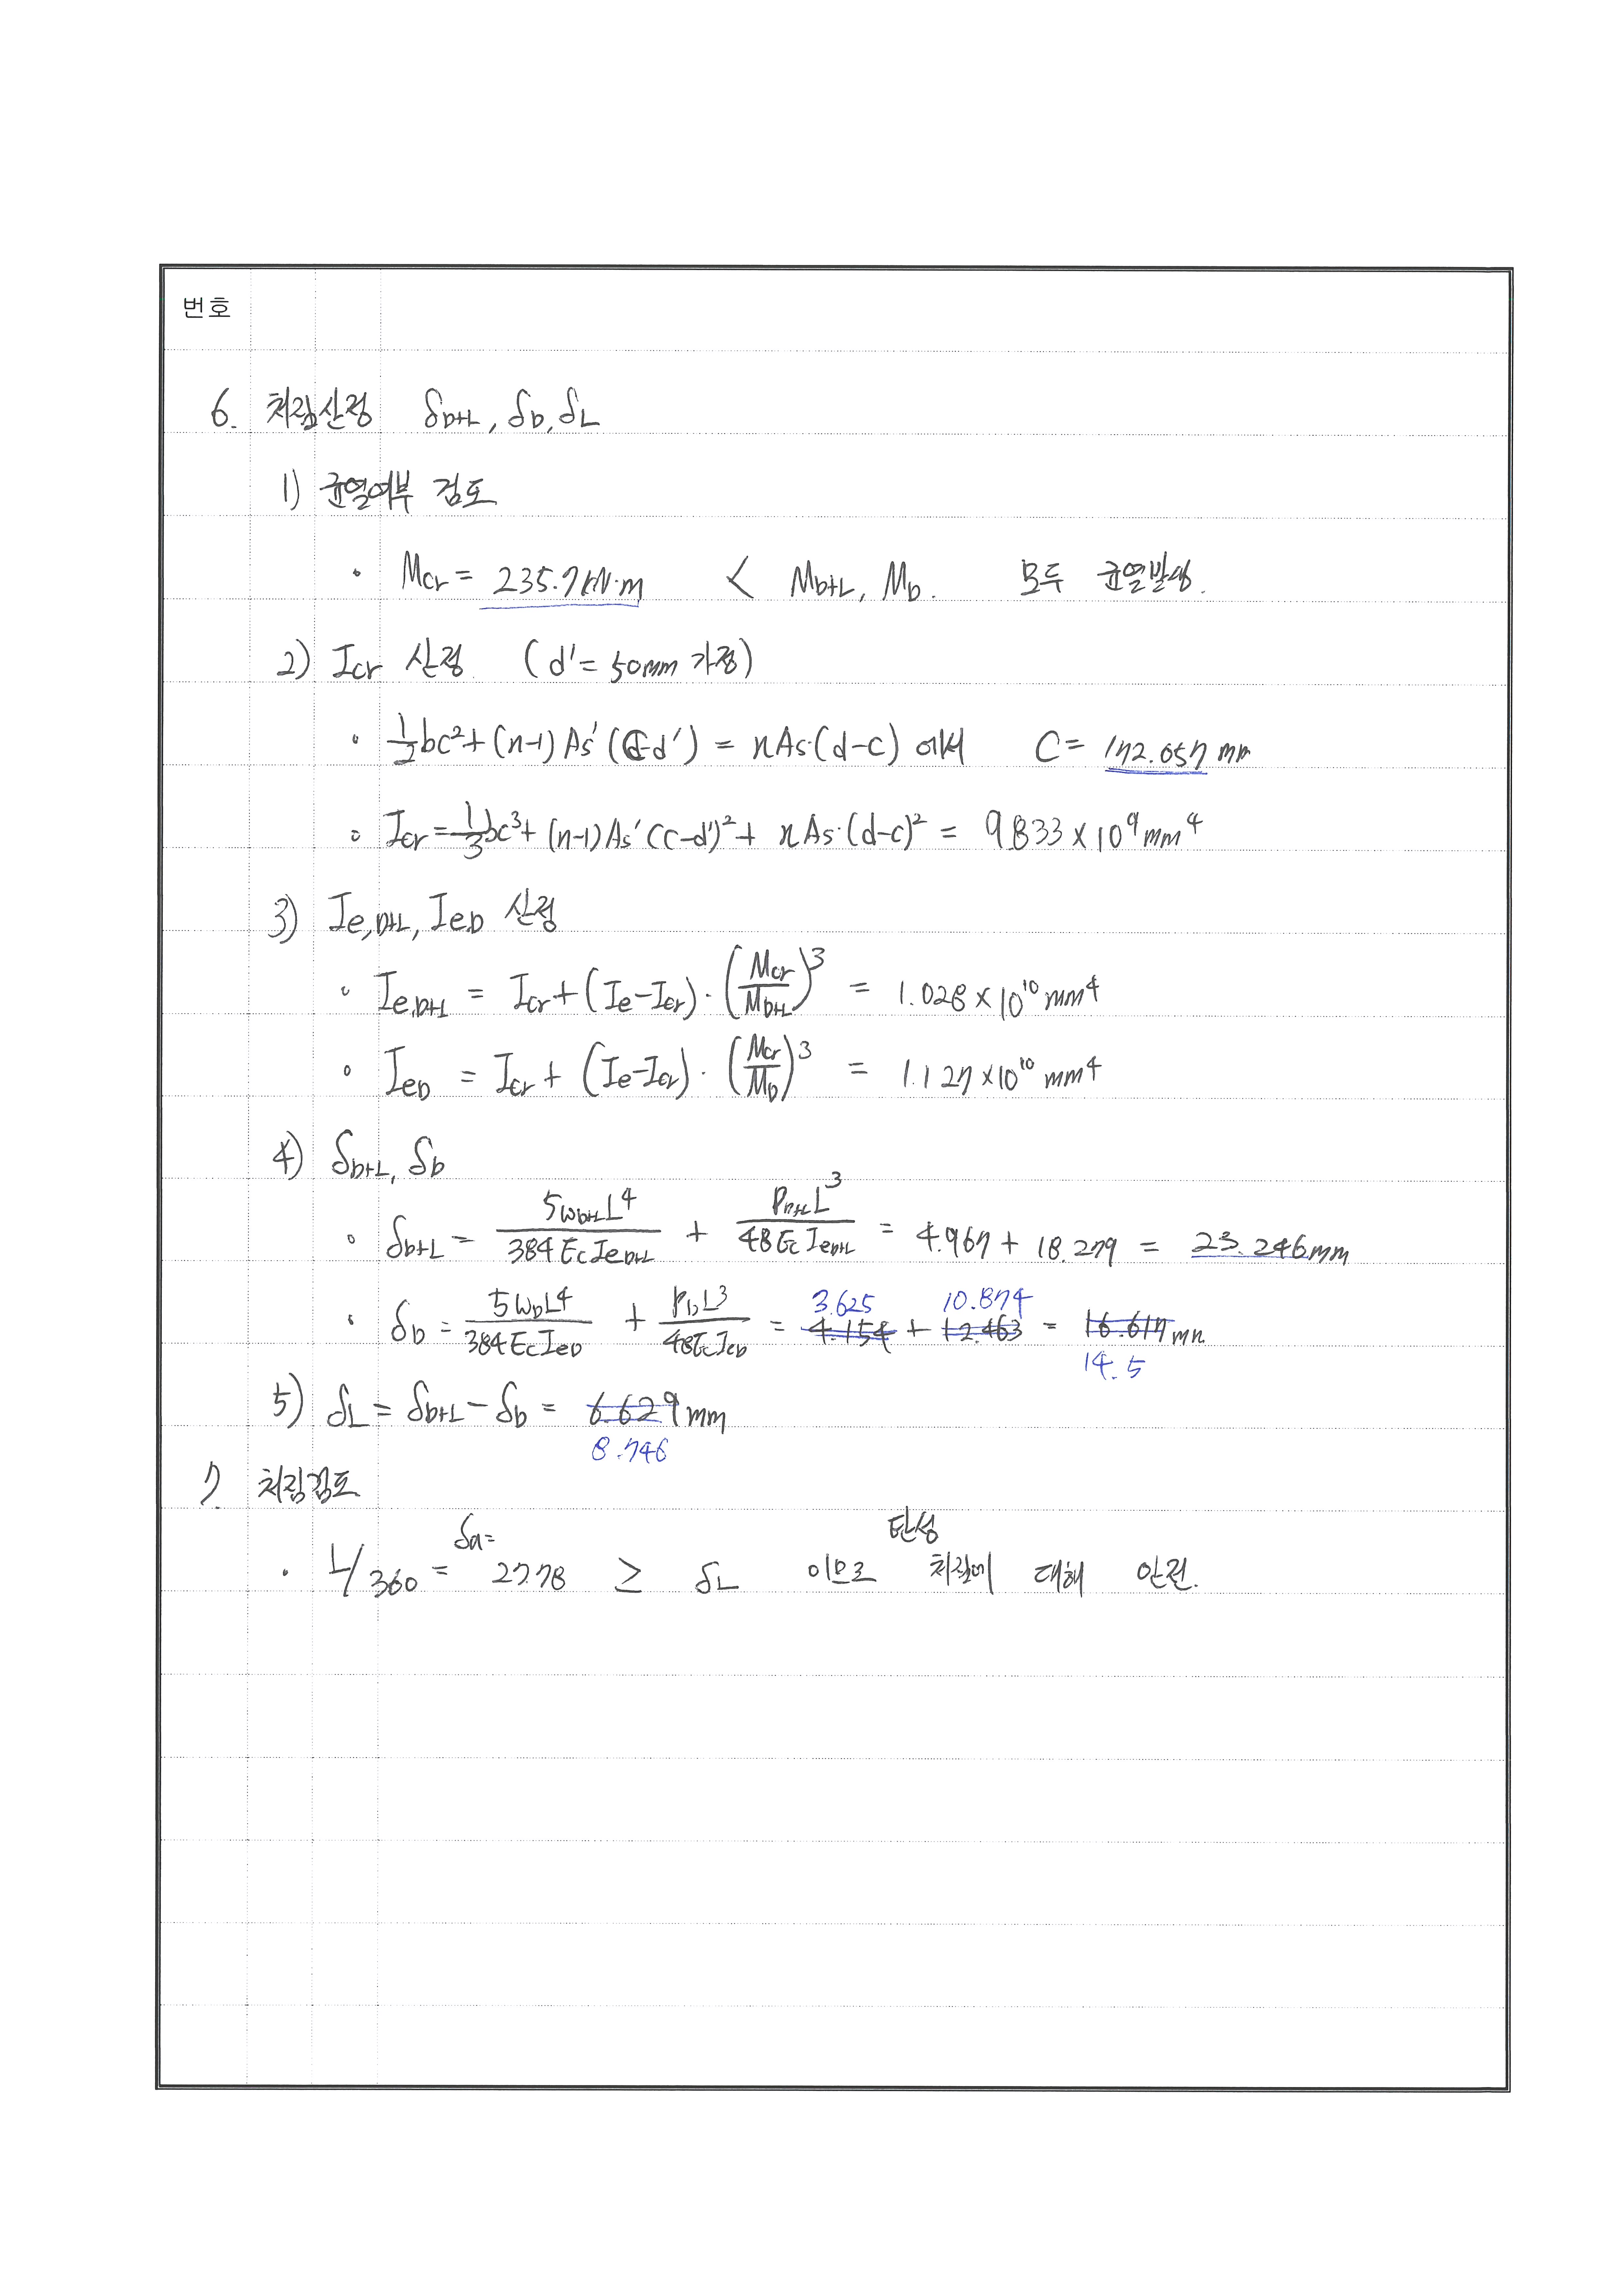 번호
6. 처짐산정 δD+L, δD, δL
1) 균열여부 검토
• Mcr = 235.7kN·m < MD+L, MD. 모두 균열발생.
2) Icr 산정 (d' = 50mm 가정)
• 1/2 bc² + (n-1) As' (c-d') = nAs·(d-c) 에서 C = 172.057 mm
• Icr = 1/3 bc³ + (n-1) As' (c-d')² + nAs·(d-c)² = 9.833 × 10⁹ mm⁴
3) Ie,D+L, IeD 산정
• Ie,D+L = Icr + (Ie-Icr)·(Mcr/MD+L)³ = 1.028 × 10¹⁰ mm⁴
• IeD = Icr + (Ie-Icr)·(Mcr/MD)³ = 1.127 × 10¹⁰ mm⁴
4) δD+L, δD
• δD+L = 5ωD+L L⁴/384EcIeD+L + PD+L L³/48EcIeD+L = 4.967 + 18.279 = 23.246mm
3.625 10.874
• δD = 5ωDL⁴/384EcIeD + PDL³/48EcIeD = 4.154 + 12.463 = 16.617 mm
14.5
5) δL = δD+L - δD = 6.629mm
8.746
7. 처짐검토
δa= 탄성
• L/360 = 27.78 ≥ δL 이므로 처짐에 대해 안전.